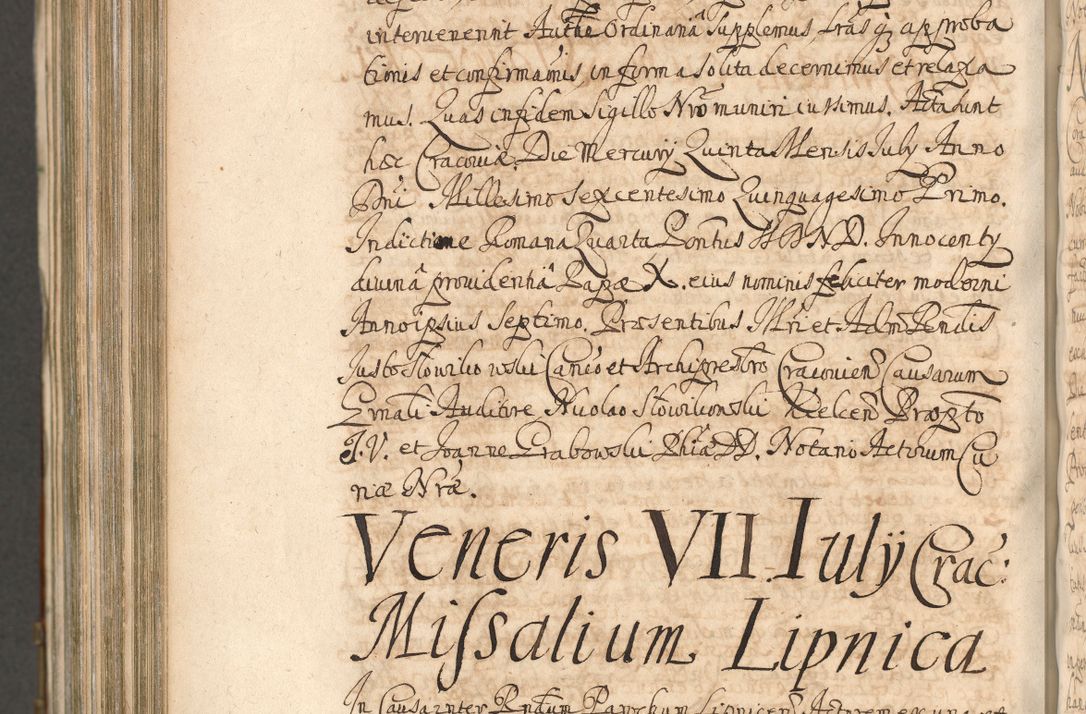 intervenerint Autthe Ordinaria supplemus, Lras q, approba
tionis et confirmaõnis, in forma solita decernimus et relaxa
mus. Quas in fidem Sigillo Nrõ muniri iussimus. Acta sunt
hæc Cracoviæ. Die Mercurÿ Quinta Mensis July Anno
Dni Millesimo sexcentesimo Quinquagesimo Primo.
Indictione Romana Quarta Pontus SSD. N.D. Innocentÿ
divinâ providentiâ Papæ X. eius nominis feliciter moderni
Anno ipsius septimo. Præsentibus Mri et Adm Rendis
Justo Słowikowski Canco et Archipresbro Cracovien Causarum
Grnali Auditore Nicolao Słowikowski Kielcen Præpto
J.V. et Joanne Grabowski Phiæ DD. Notario Actorum Cu
riæ Nræ.
Veneris VII Iulÿ Crac:
Missalium Lipnica
In Causa inter Rndum Parochum Lipnicen Actorem ex una et